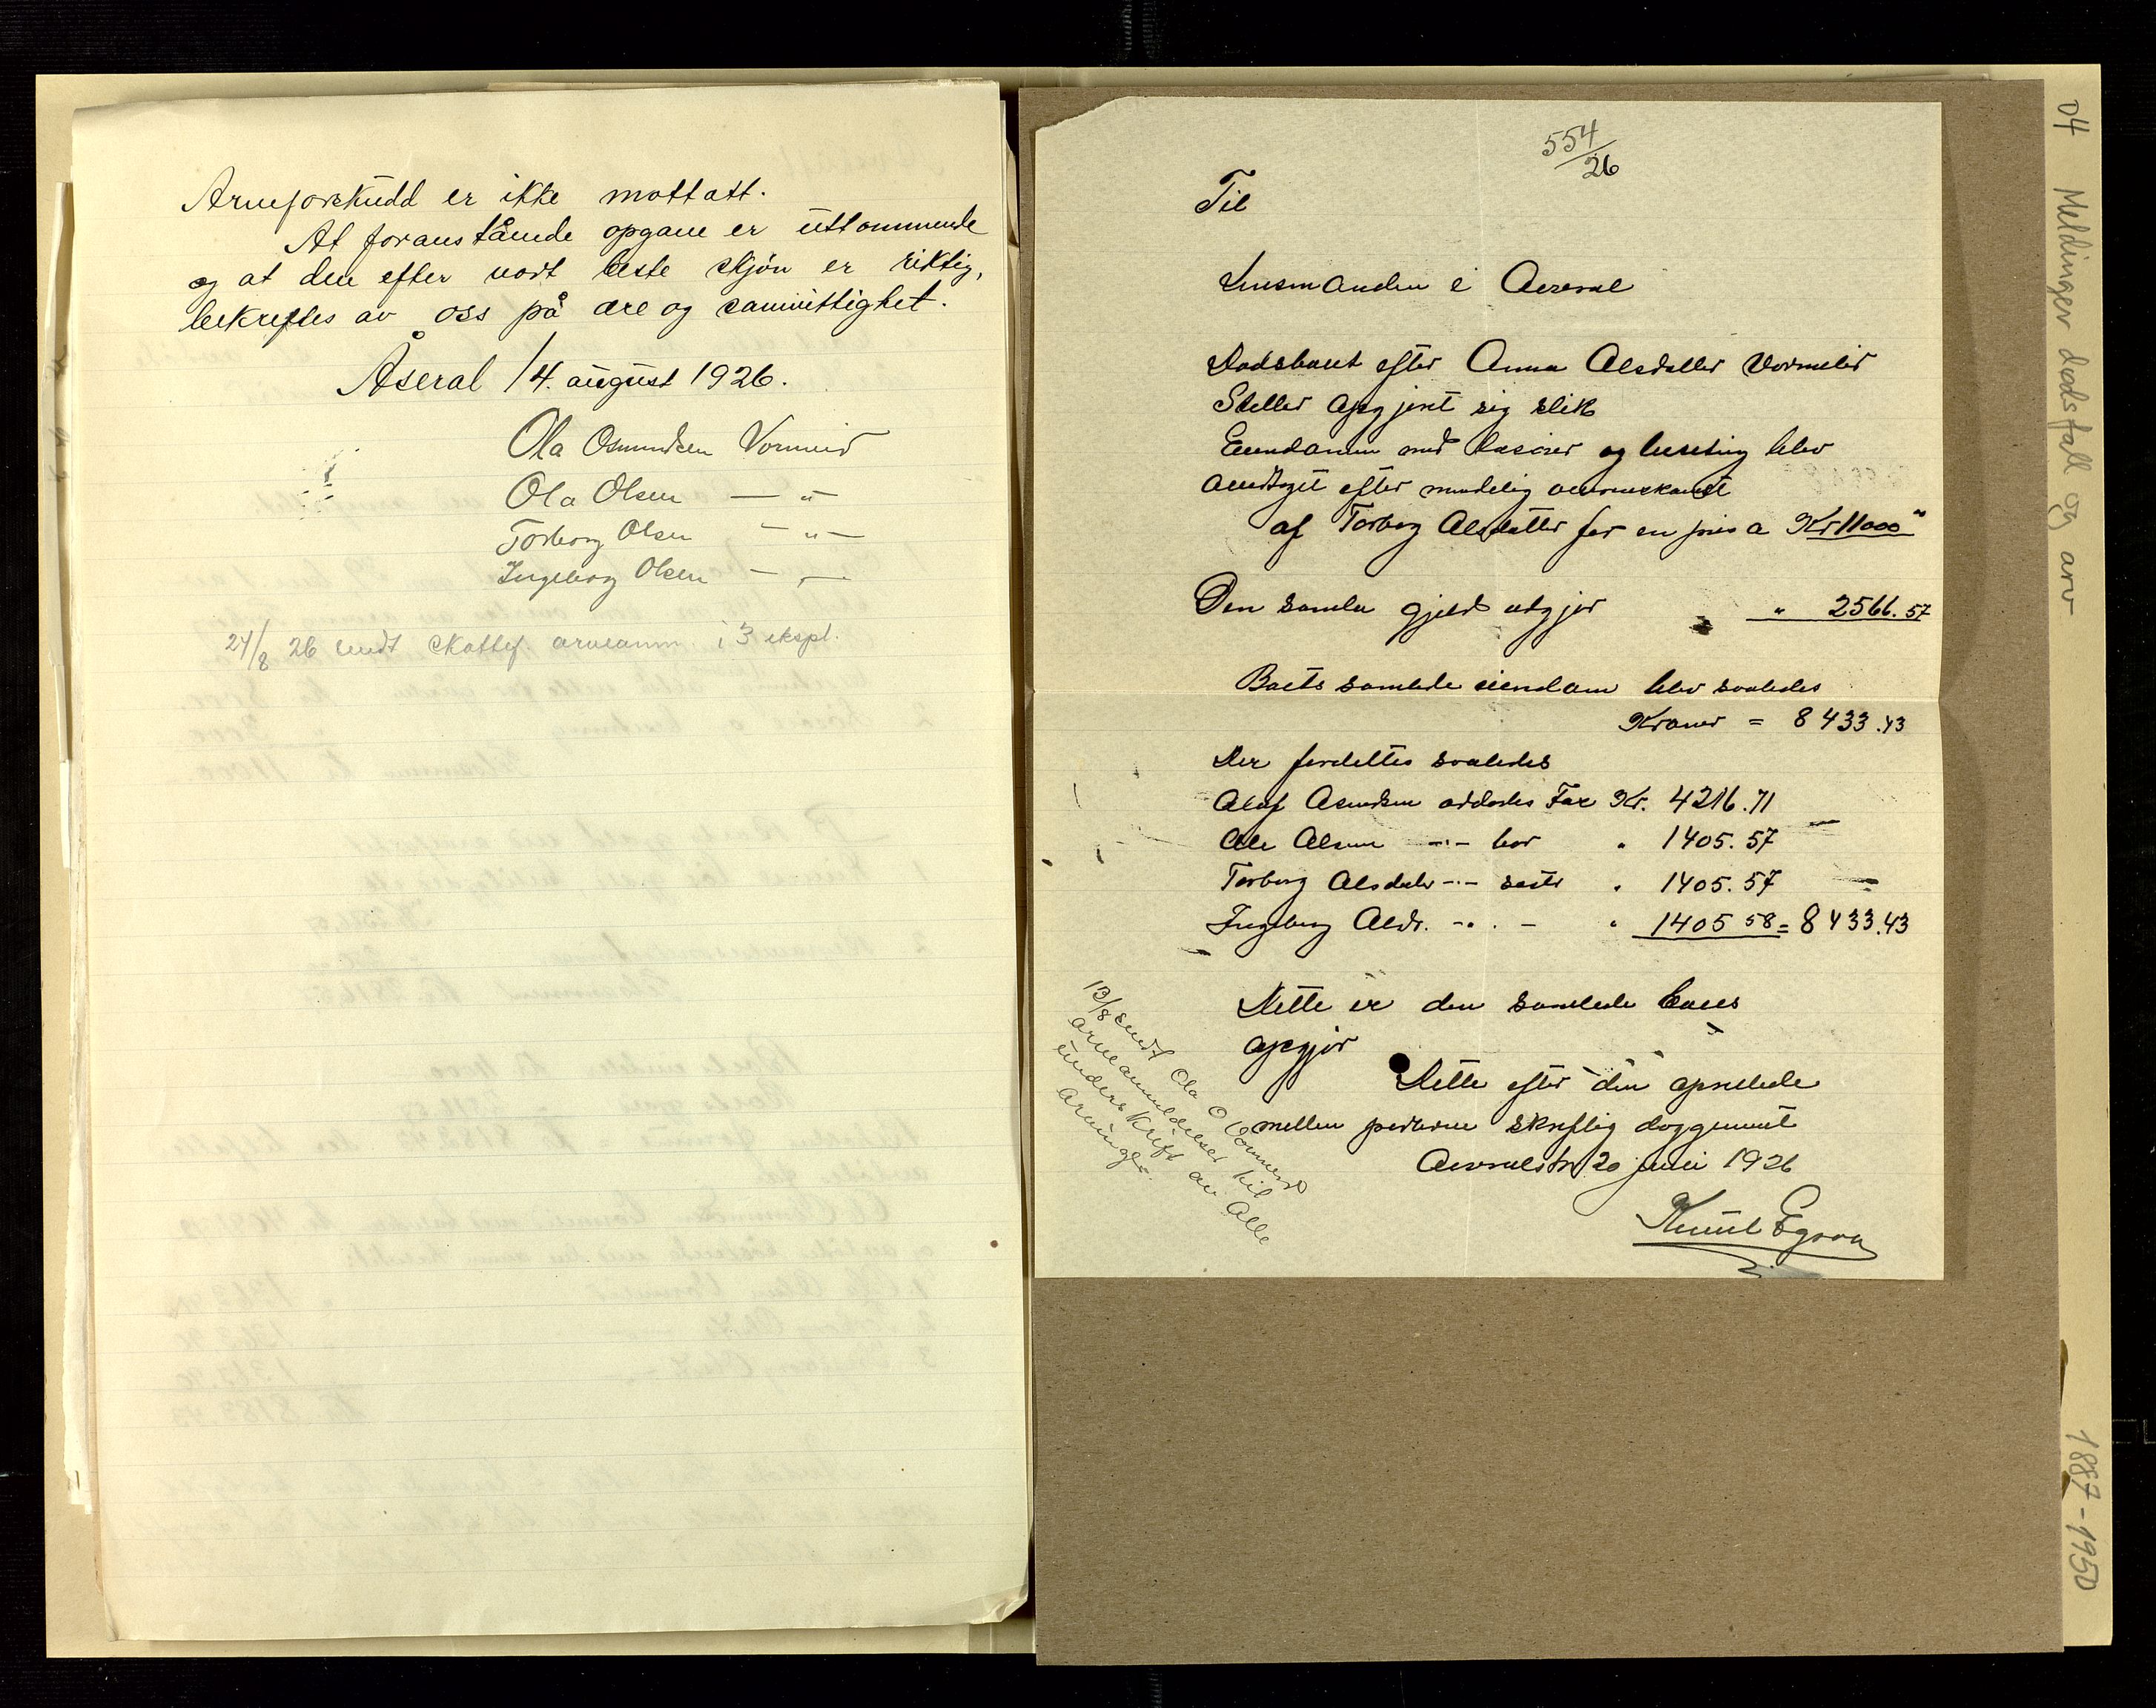 Arveforskudd er ikke mottatt.
At foranstående opgave er uttømmende
og at den efter vort beste skjøn er riktig,
bekreftes av oss på ære og samvittighet.
Åseral 14. august 1926.
Ola Osmundsen Vormeid
Ola Olsen — " —
Torborg Olsen — " —
Ingeborg Olsen — " —
24/8 26 sendt skattef. arveanm. i 3 ekspl.
554/26
Til
Lensmanden i Aaseral
Dødsboet efter Anna Olsdatter Vormeid
Steller opgjort sig slik
Eiendomen med og besetning blev
efter mundelig
af Torborg Olsdatter for en pris a Kr 11000"
Den samla gjeld udgjør " 2566.57
Boets samlede eiendom blev saaledes
Kroner = 8433.43
Der fordeltes saaledes
Oluf Asmdsen avdødes Far Kr. 4216.71
Ole Olsen —"— bor " 1405.57
Torborg Olsdatr —"— søster " 1405.57
Ingeborg Olsdr. —"— " 1405 58 = 8433.43
Dette er den samlede boets
opgjør
Dette efter den oprettede
mellem partene skriftlig doggument
20 juni 1926
Knut Egsaa
13/8 sendt Ola O Vormeid
arveanmeldelser til
underskrift av Alle
Arvinger.
04 Meldinger dødsfall og arv 1887-1950